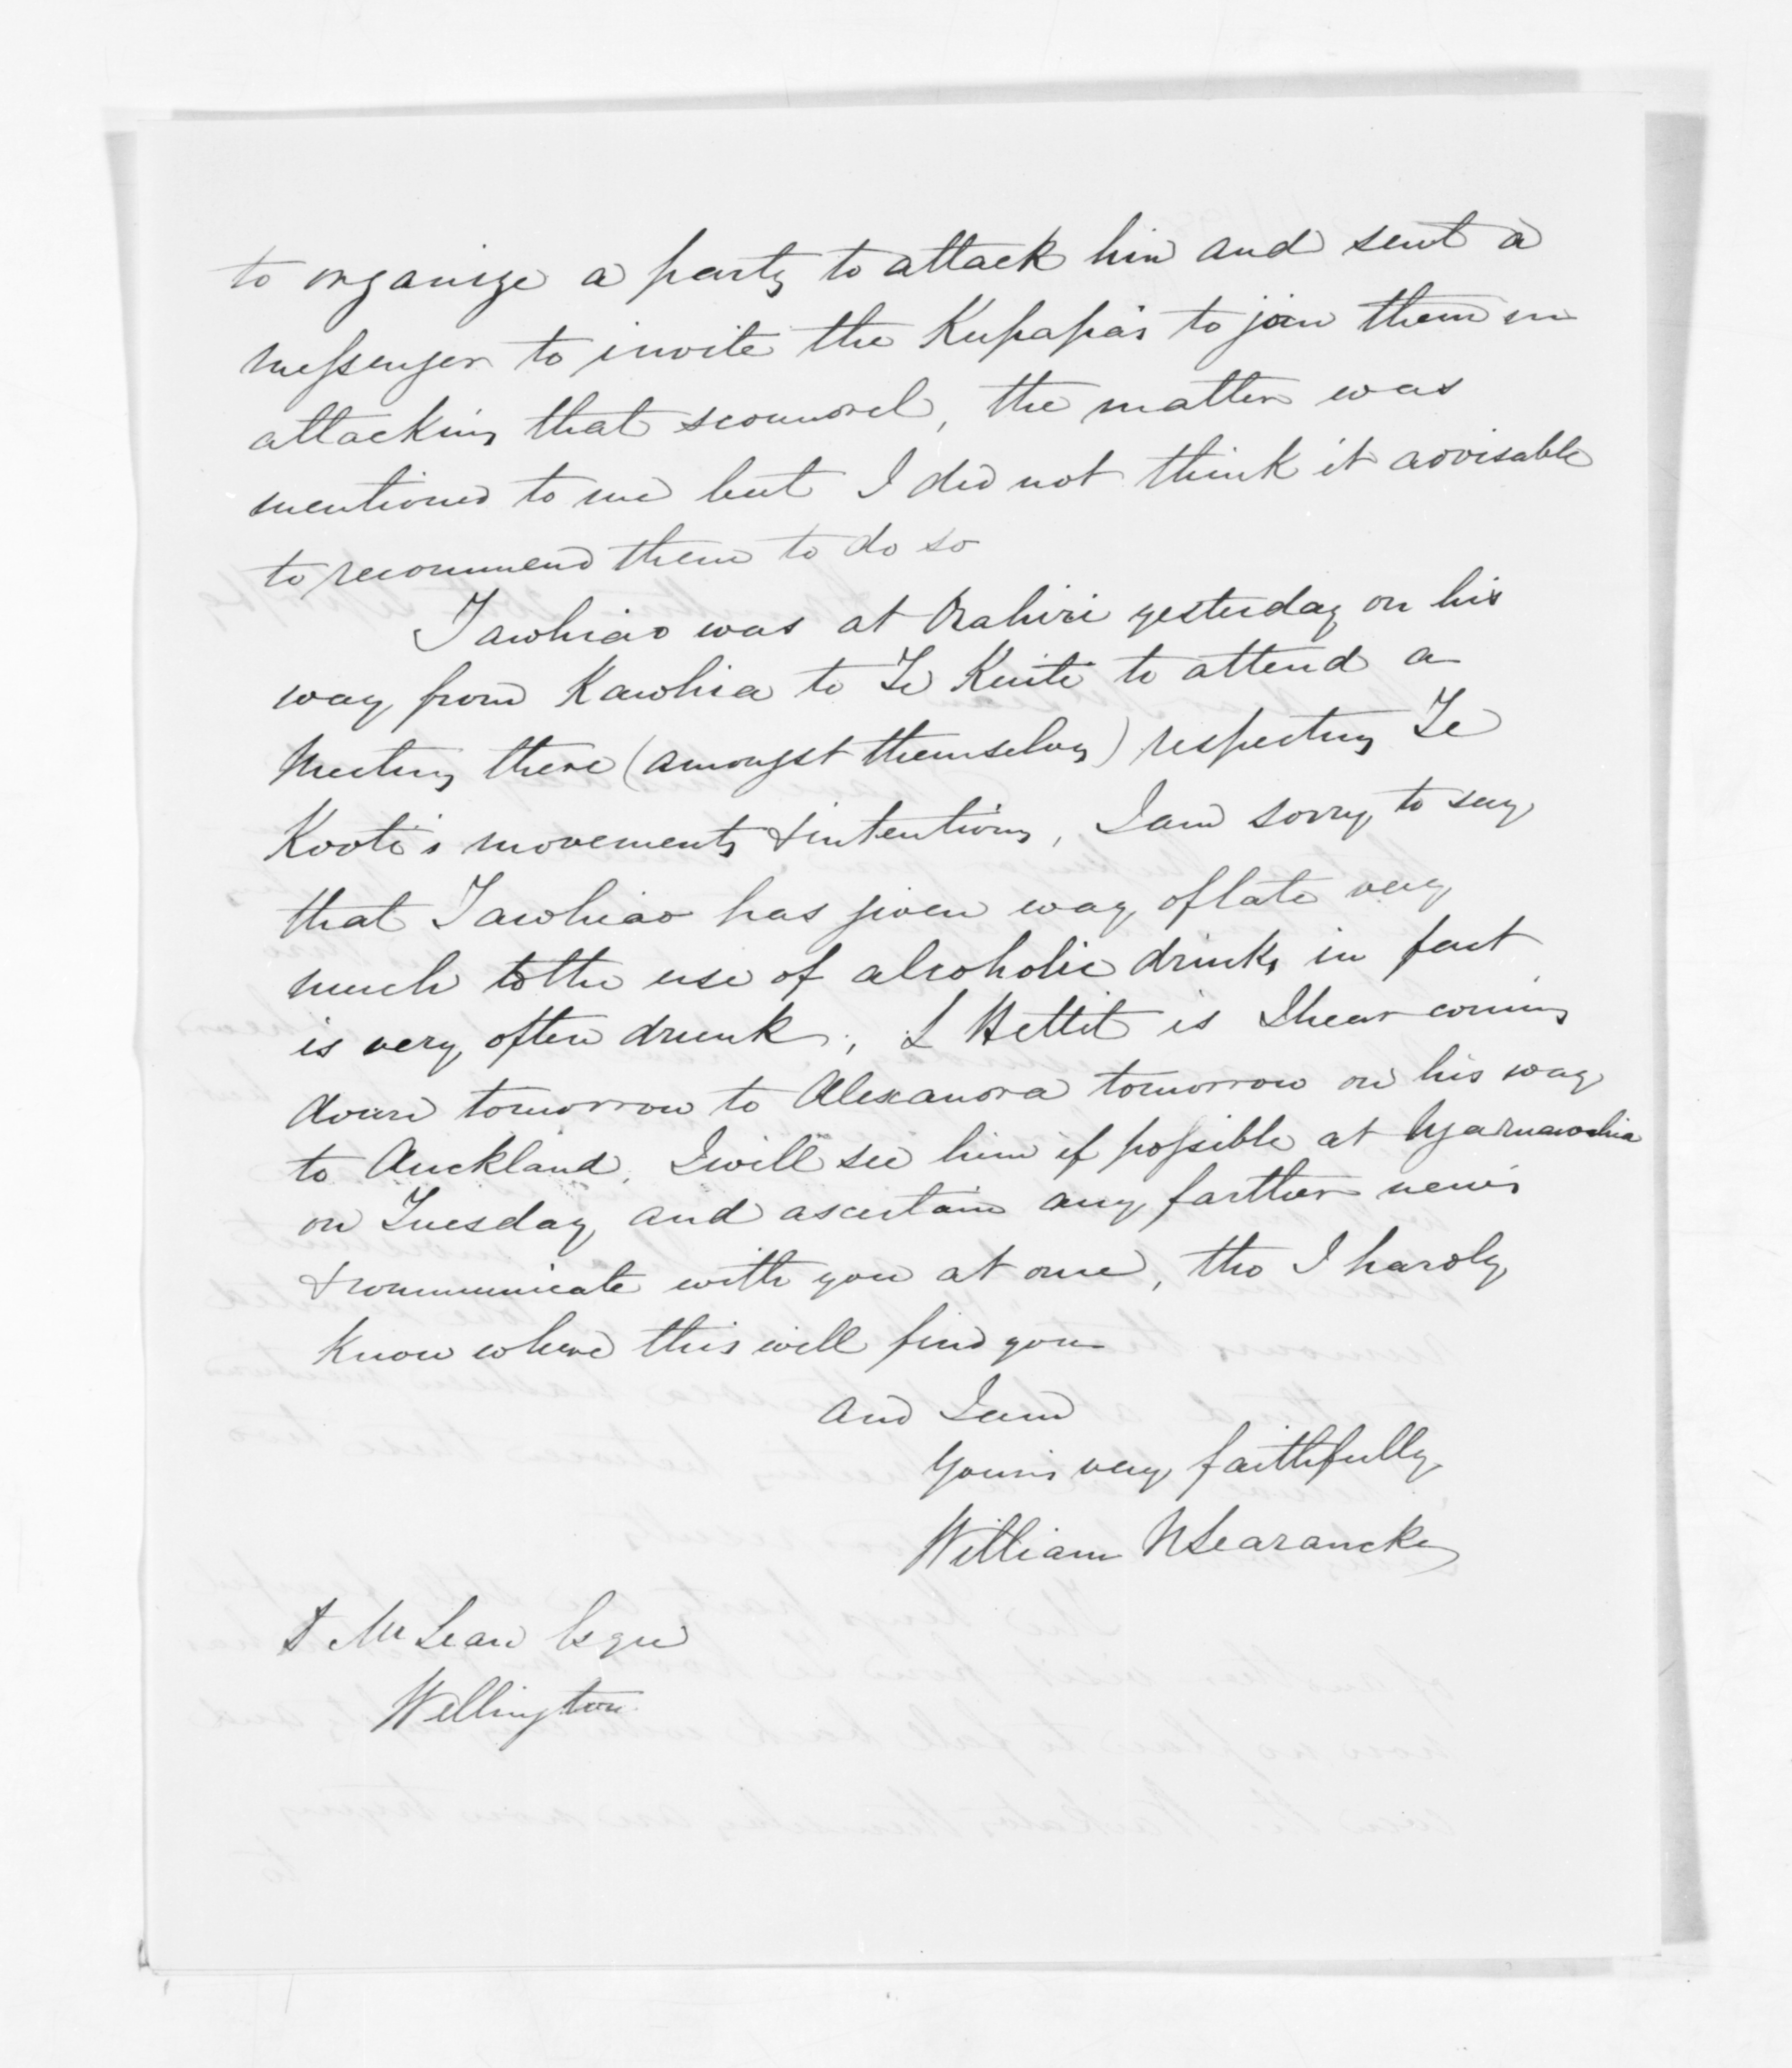 to organize a party to attack him and sent a
messenger to invite the Kupapa's to join them in
attacking that scoundrel, the matter was
mentioned to me but I did not think it advisable
to recommend them to do so
Tawhiao was at Orahiri yesterday on his
way from Kawhia to Te Kuiti to attend a
Meeting there (amongst themselves) respecting Te
Kooti's movements & intentions, I am sorry to say
that Tawhiao has given way of late very
much to the use of alcoholic drinks, in fact
is very often drunk; L Hettit is I hear coming
down tomorrow to Alexandra tomorrow on his way
to Auckland. I will see him if possible at Ngaruawahia
on Tuesday, and ascertain any farther news
& communicate with you at once, tho I hardly
know where this will find you
and I am
Yours very faithfully
William N Searancke
D McLean Esqre
Wellington.